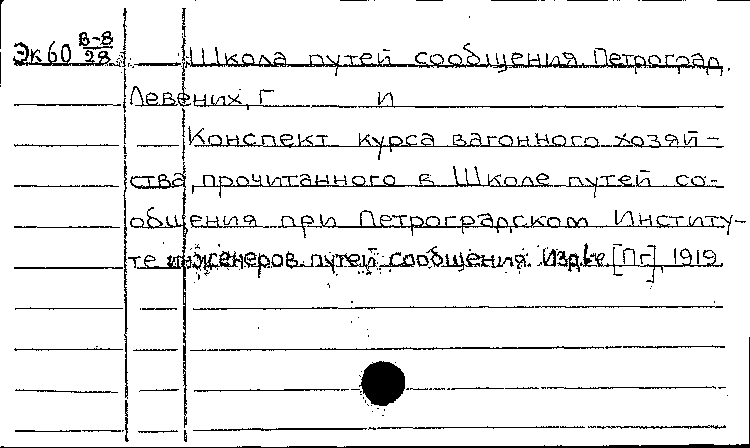 Эк60 В-8/28 Школа путей сообщения. Петроград.
Левених, Г И
Конспект курса вагонного хозяй-
ства, прочитанного в Школе путей со-
общения при Петроградском Институ-
те инженеров путей сообщения. Изд-е [Пг], 1919